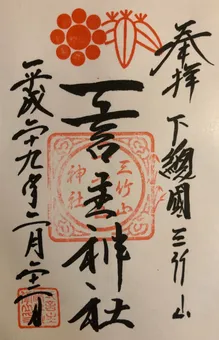 奉拝 下總國 三竹山
一言主神社
平成二十九年二月二十二日
三竹山
神社